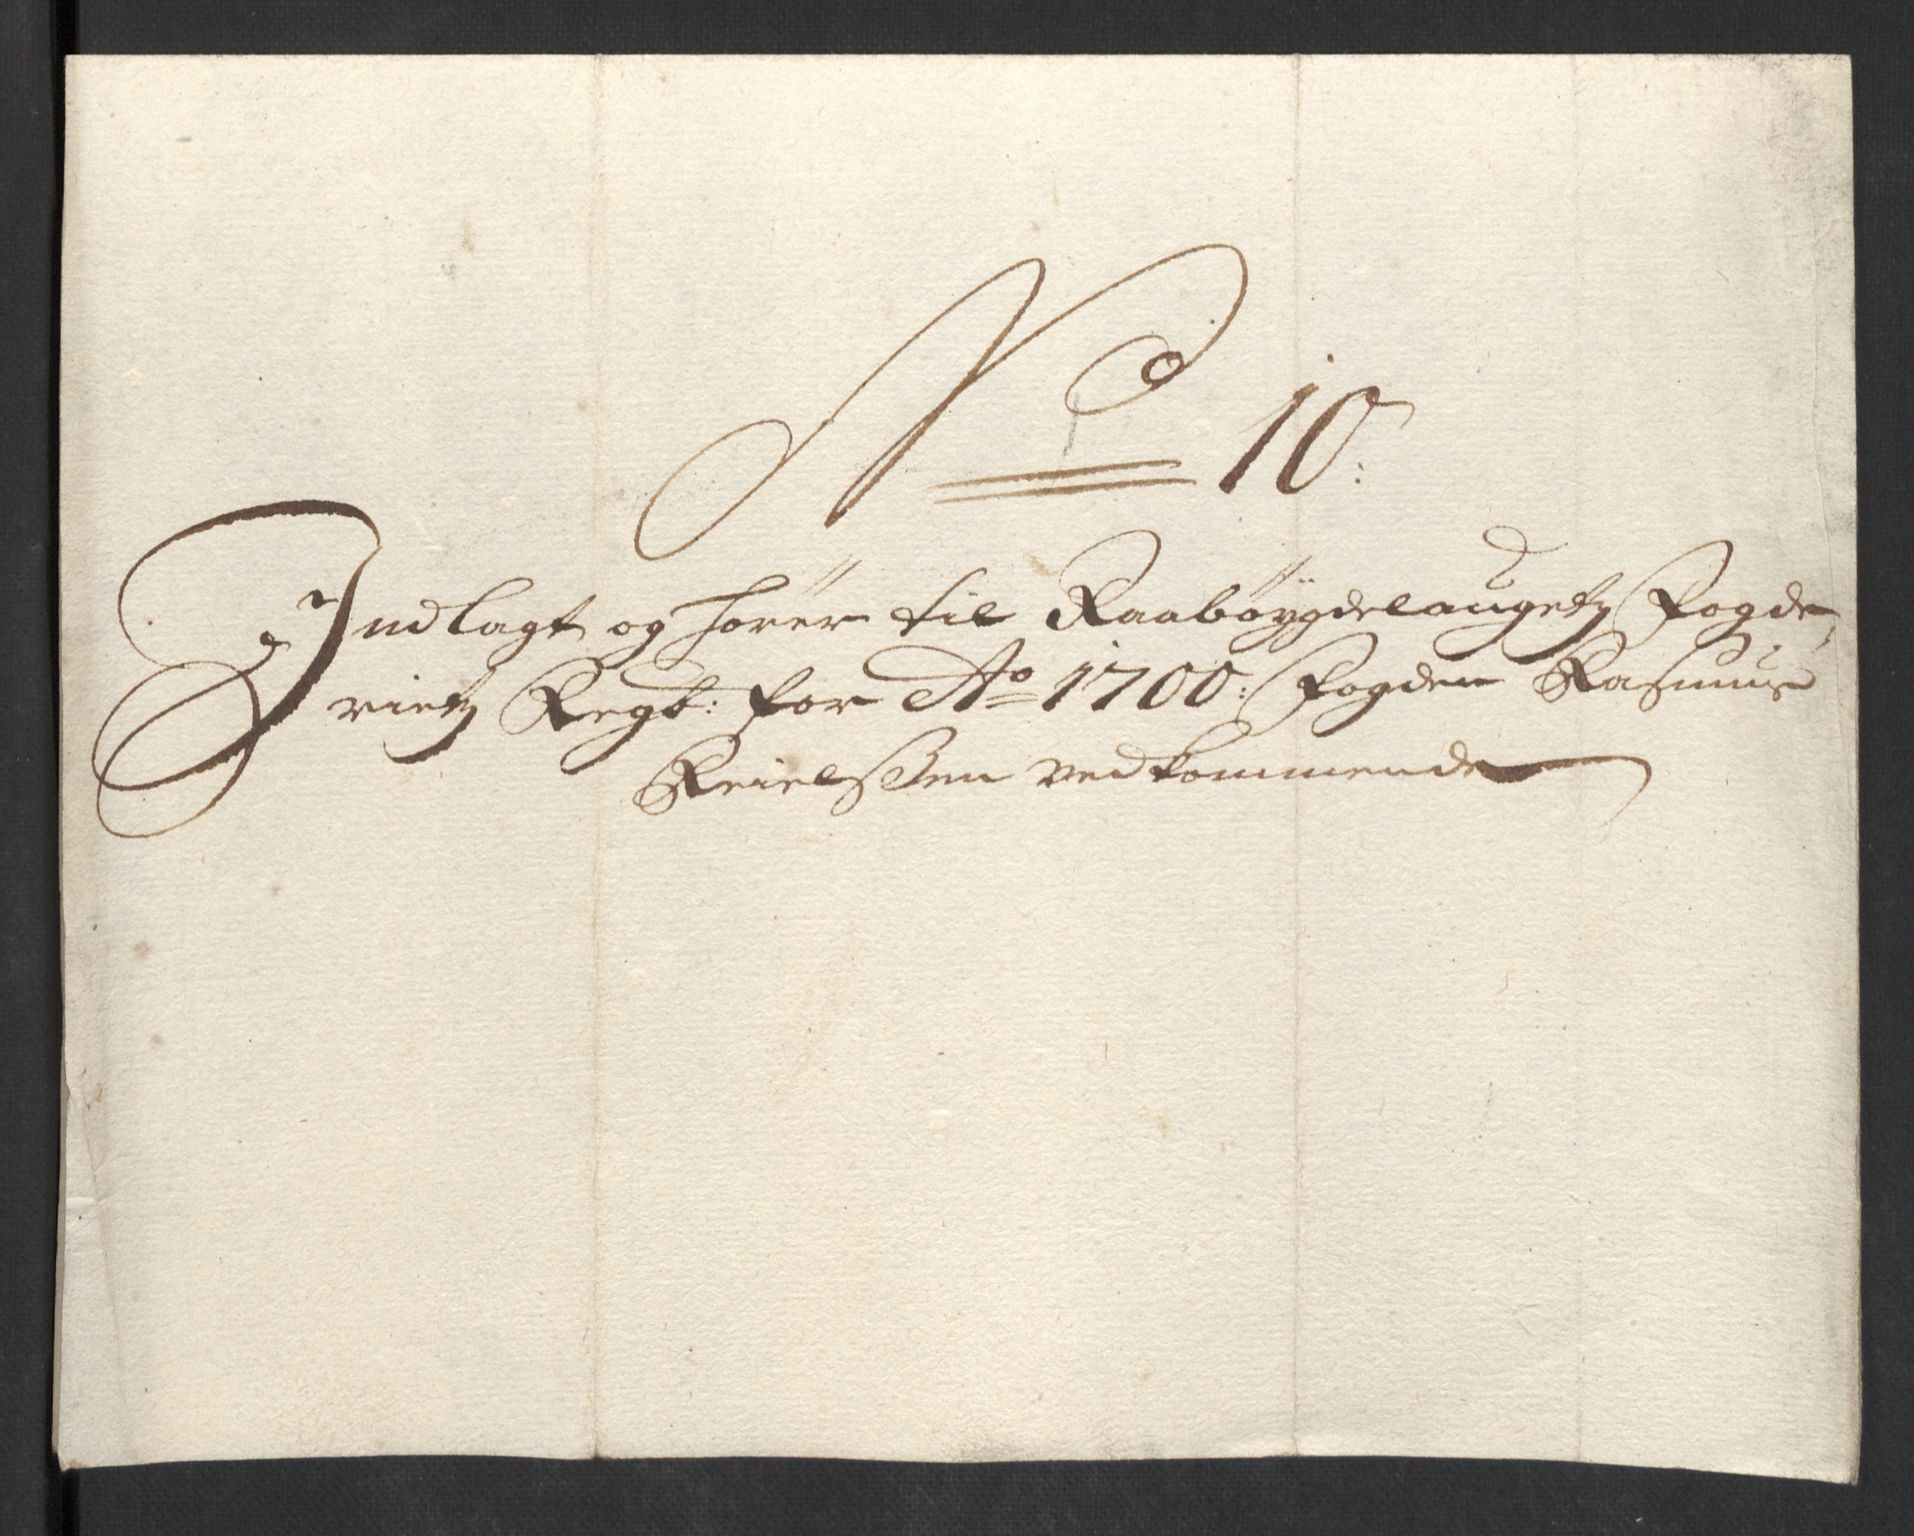 No 10:
Indlagt og hører til Raabøygdelaugetz Fogde,
rietz Regt: for Ao 1700: Fogden Rasmus
Reielssen vedkommende